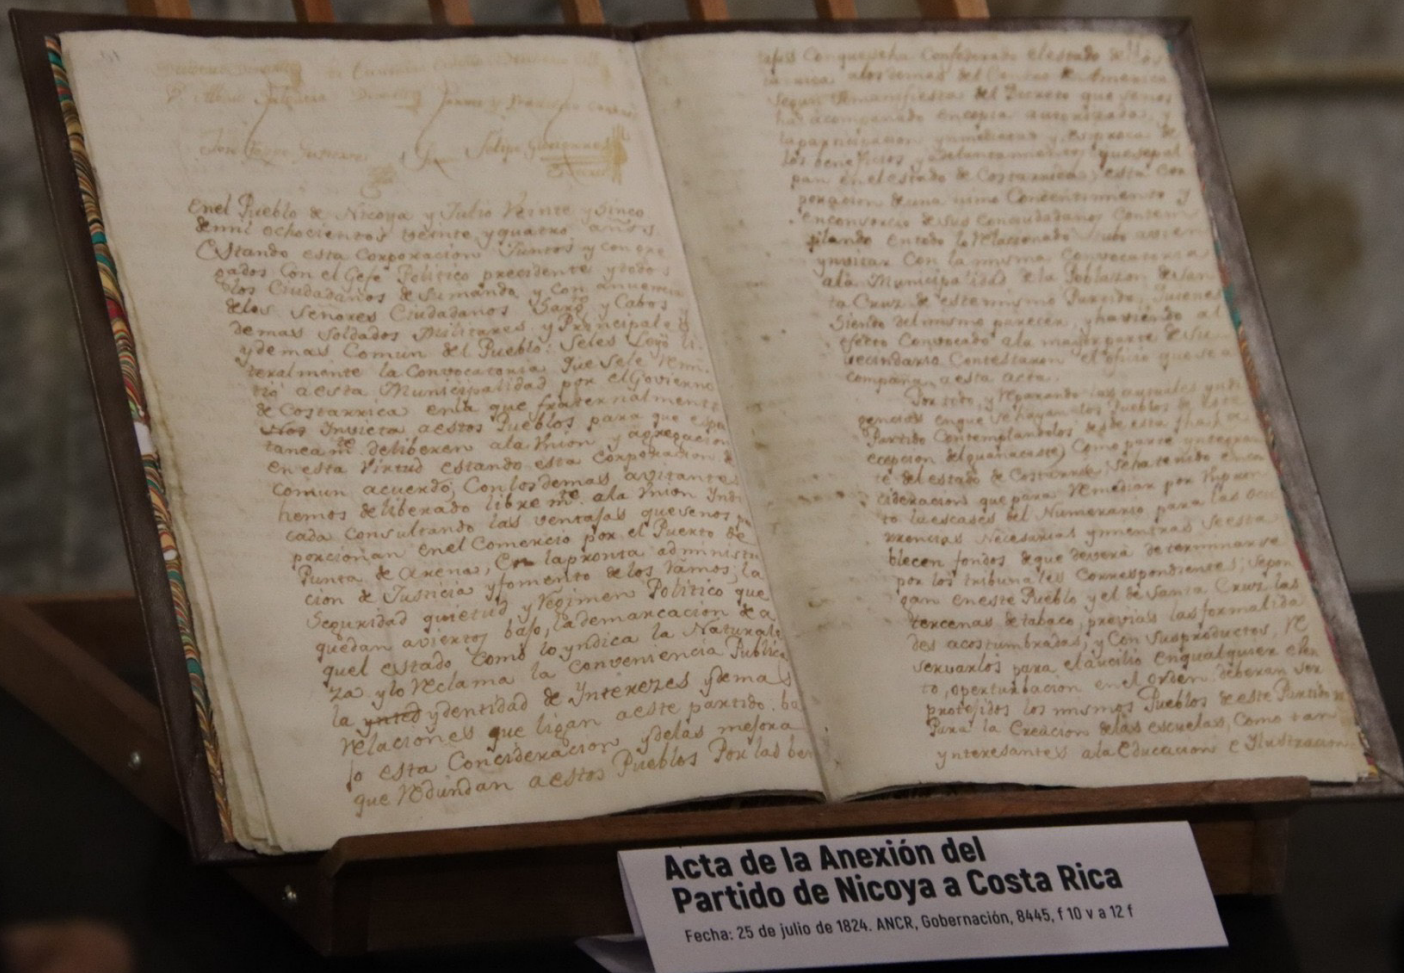 En el Pueblo de Nicoya y Julio Veinte y Sinco
demil ochocientos veinte y quatro años
Estando esta Corporacion Juntos y con
gados Con el Gefe Politico precidente y todos
los Ciudadanos de Sumando y con anuencia
delos Señores Ciudadanos Sarg.to y Cabos
demas Soldados Militares y Principales
ydemas Comun del Pueblo: Seles Leyó li
teralmente la Convocatoria que Sele remi
tió a esta Municipalidad por el Govierno
de Costarrica en la que fraternalmente
Nos Invicta aestos Pueblos para que espo
tanea m.te deliberen ala Union y agregacion
en esta Virtud estando esta Corporacion de
comun acuerdo, Con losdemas avitantes
hemos deliberado libre m.te ala Union Yndi
cada Consultando las ventajas quesenos
porcionan enel Comercio por el Puerto de
Punta de Arenas, Con lapronta administra
cion de Justicia yfomento de los ramos; la
Seguridad quietud y Regimen Politico que
quedan aviertos bajo, lademarcacion de a
quel estado Como lo yndica la Naturale
za ylo Reclama la Conveniencia Publica
la ydentidad de Yntereses ydemas
relaciones que ligan aeste partido. ba
jo esta Concideracion ydelas mejora
que redundan a estos Pueblos Por las ben
Conqueseha Confederado elestado de Cos
tarrica alosdemas del Centro de America
Segun Semanifiesta del Decreto que senos
ha acompañado encopia autorizada, y
laparticipacion ynmediata y reciproca de
los beneficios y adelantamientos quesepal
pan enelestado de Costarrica; esta Cor
poracion de una unimo Concentimiento y
enconsorcio de sus Conciudadanos Contem
plando entodo lo relacionado
ynvitar Con la misma Convocatoria
ala Municipalidad de la Poblacion de San
ta Cruz de estemismo Partido, quienes
Siendo delmismo parecer, yhaviendo al
efecto Convocado ala mayorparte de su
vecindario Contestaron el oficio quesea
compaña aesta acta.
Por todo, y reparando las
gencias enque sehayan los Pueblos de este
Partido Contemplandolos desde esta fha (a
ecepcion delguanacaste) Como parte yntegran
te del estado de Costarrica; Seha tenido en con
cideracion que para remediar por lo pron
to laescases del Numerario para las
Necesarias ymientras Seesta
blecen fondos deque deverá determinarse
por los tribunales Correspondientes; Sepon
gan eneste Pueblo y el de Santa Cruz las
tercenas de tabaco, previas las formalida
des acostumbradas, y Con susproductos, re
servarlos para elaucilio enqualquier eben
to, operturbacion en el orden, deberan ser
protejidos los mismos Pueblos de este Partido
Para la Creacion delas escuelas, Como tan
ynteresantes ala Educacion e Ylustracion
Acta de la Anexión del
Partido de Nicoya a Costa Rica
Fecha: 25 de julio de 1824. ANCR, Gobernación, 8445, f 10 v a 12 f